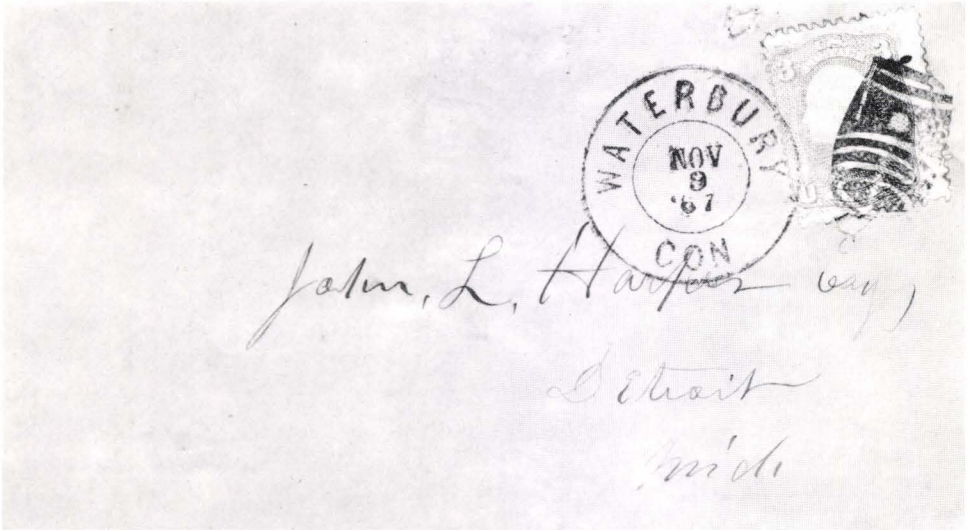 WATERBURY
NOV
9
'67
CON
3
John. L. Harper
Detroit
Mich